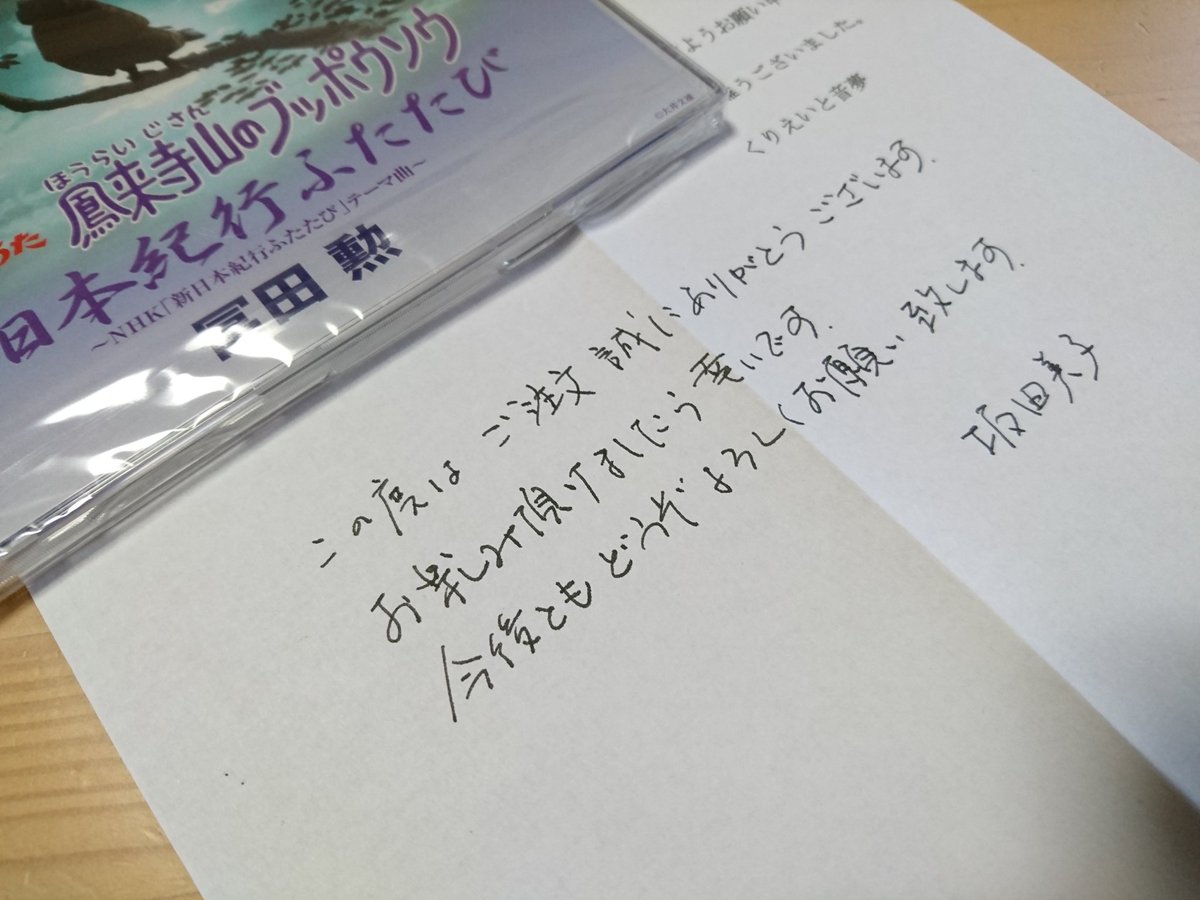 ほうらいじさん
鳳来寺山のブッポウソウ
うた
日本紀行ふたたび
～NHK「新日本紀行ふたたび」テーマ曲～
冨田 勲
ようお願い申
うございました。
くりえいと音夢
この度は ご注文 誠にありがとうございます.
お楽しみ頂けましたら 幸いです.
今後とも どうぞ よろしくお願い致します.
坂田美子